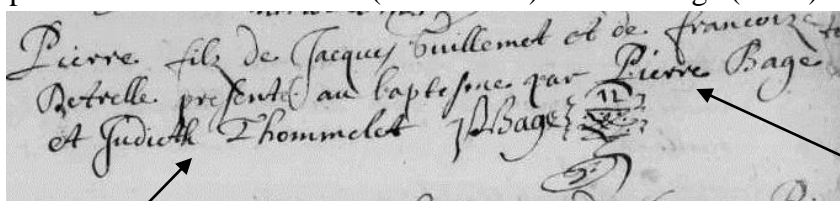 Pierre filz de Jacques Guillemet et de francoize
Betrelle presenté au baptesme par Pierre Bage
et Judieth Thommelet PBage